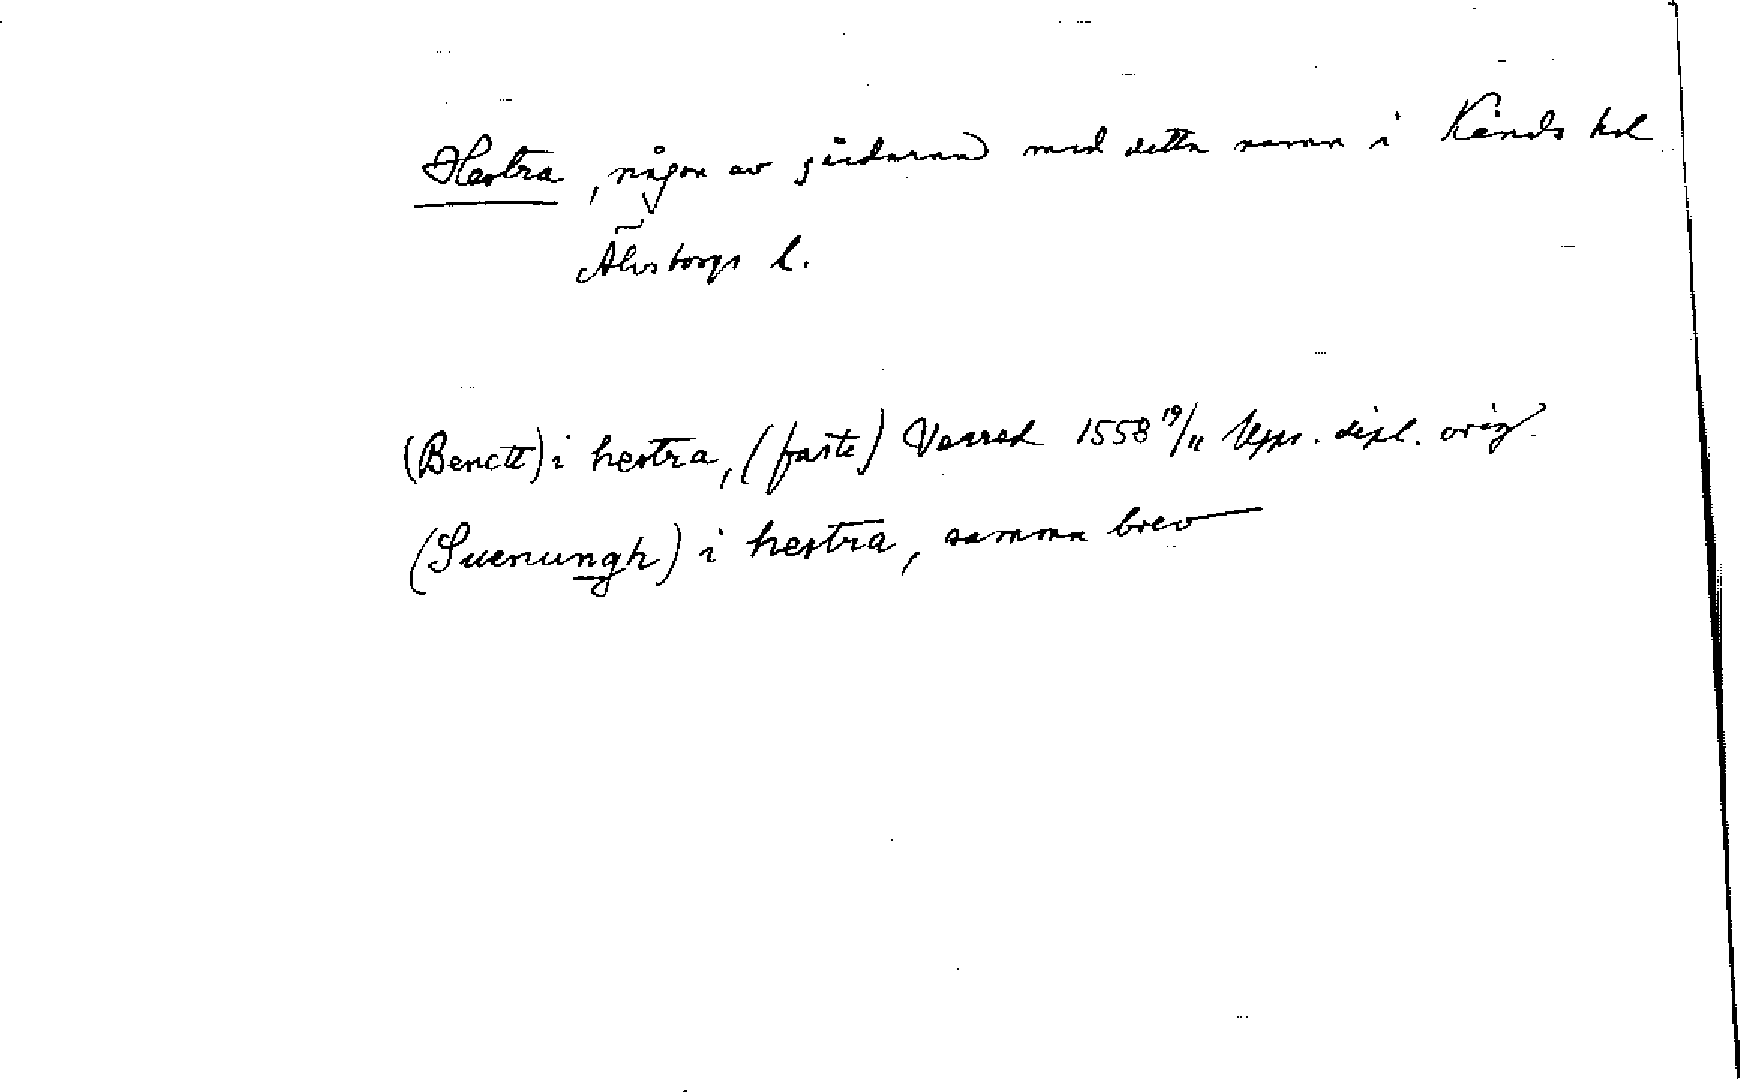 Hestra, någon av gårdarna med detta namn i Kinds hd
Älvsborgs l.
(Benctt) i hestra, (faste) 1558 19/11 Upps. dipl. orig.
(Suenungh) i hestra, samma brev